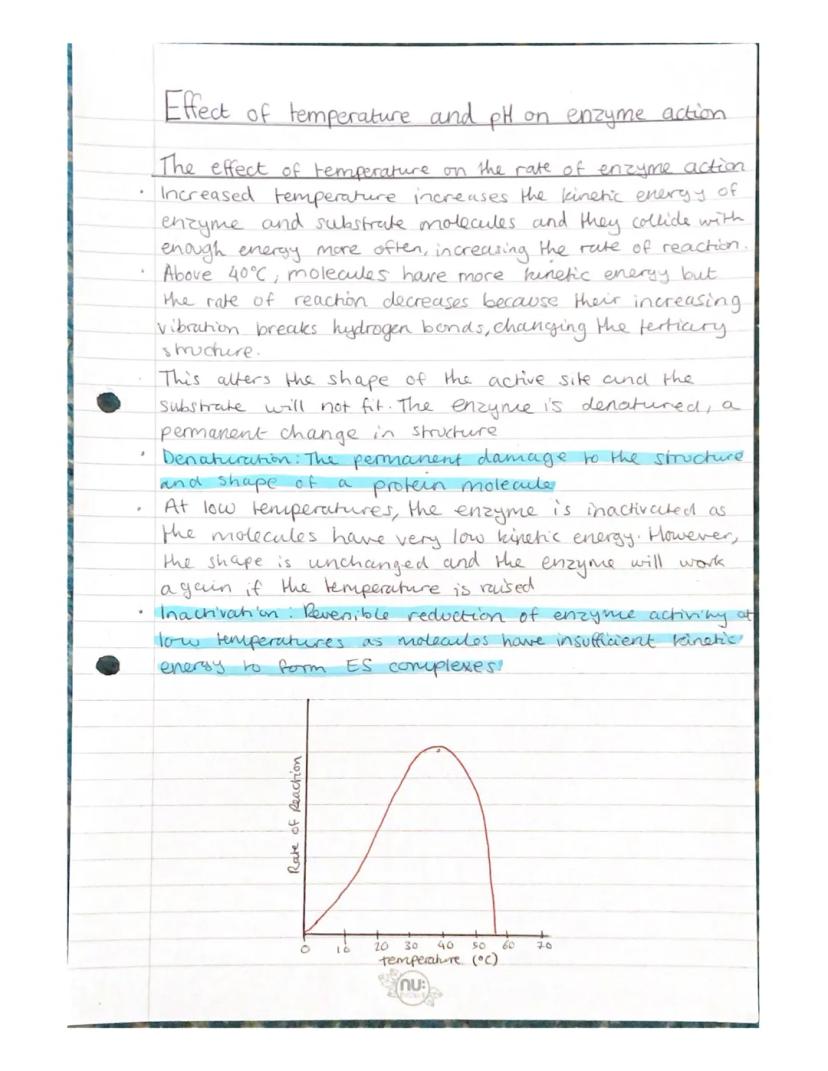 Effect of temperature and pH on enzyme action
The effect of temperature on the rate of enzyme action
• Increased temperature increases the kinetic energy of
enzyme and substrate molecules and they collide with
enough energy more often, increasing the rate of reaction.
• Above 40°C, molecules have more kinetic energy but
the rate of reaction decreases because their increasing
vibration breaks hydrogen bonds, changing the tertiary
structure.
• This alters the shape of the active site and the
substrate will not fit. The enzyme is denatured, a
permanent change in structure
• Denaturation: The permanent damage to the structure
and shape of a protein molecule
• At low temperatures, the enzyme is inactivated as
the molecules have very low kinetic energy. However,
the shape is unchanged and the enzyme will work
again if the temperature is raised
• Inactivation: Reversible reduction of enzyme activity at
low temperatures as molecules have insufficient kinetic
energy to form ES complexes
Rate of Reaction
0 10 20 30 40 50 60 70
temperature (°C)
nu: